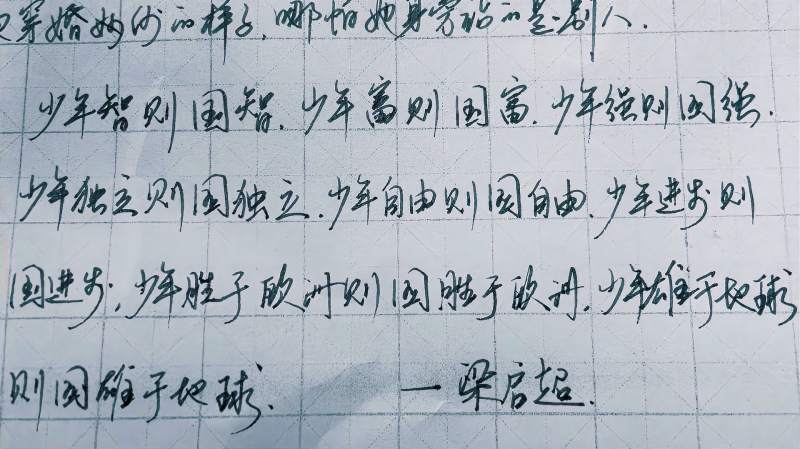 穿婚纱的样子,哪怕她身旁站的是别人.
少年智则国智.少年富则国富.少年强则国强.
少年独立则国独立.少年自由则国自由.少年进步则
国进步,少年胜于欧洲则国胜于欧洲.少年雄于地球
则国雄于地球. 一梁启超.